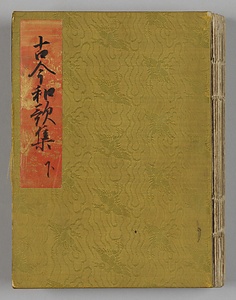 古今和歌集 下